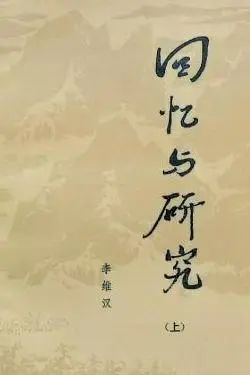 回忆与研究
（上）
李维汉